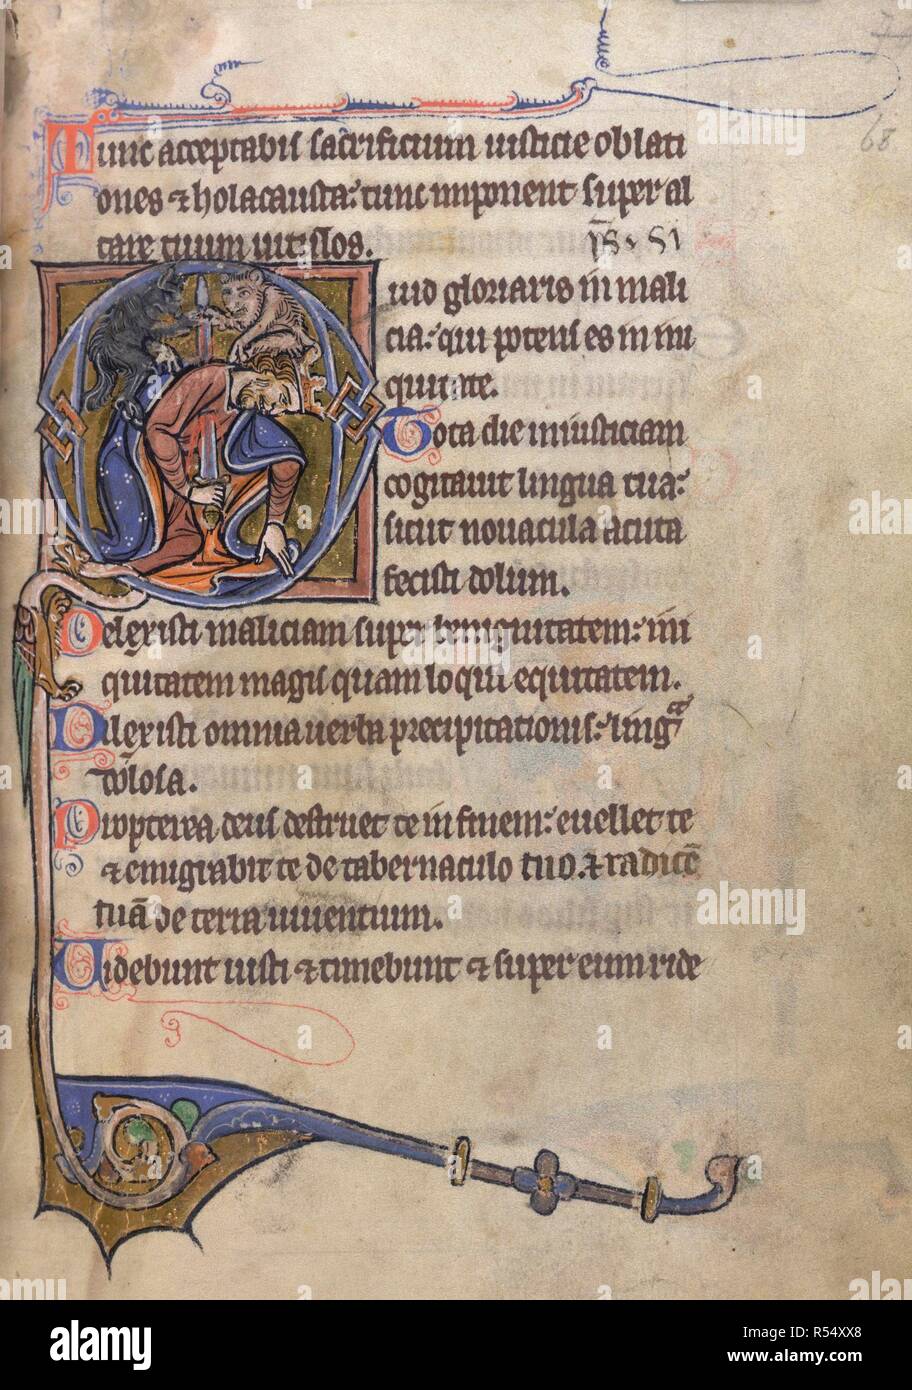 7
68
Tunc acceptabis sacrificium iusticie oblati
ones ⁊ holacausta: tunc imponent super al
tare tuum uitulos.
ps. 51
Quid gloriaris in mali
cia: qui potens es in ini
quitate.
Tota die iniusticiam
cogitauit lingua tua:
sicut nouacula acuta
fecisti dolum.
Delexisti maliciam super benignitatem: ini
quitatem magis quam loqui equitatem.
Dilexisti omnia uerba precipitationis: lingua
dolosa.
Propterea deus destruet te in finem: euellet te
⁊ emigrabit te de tabernaculo tuo. ⁊ radicē
tuā de terra uiuentium.
Videbunt iusti ⁊ timebunt ⁊ super eum ride
alamy
Image ID: R54XX8
www.alamy.com